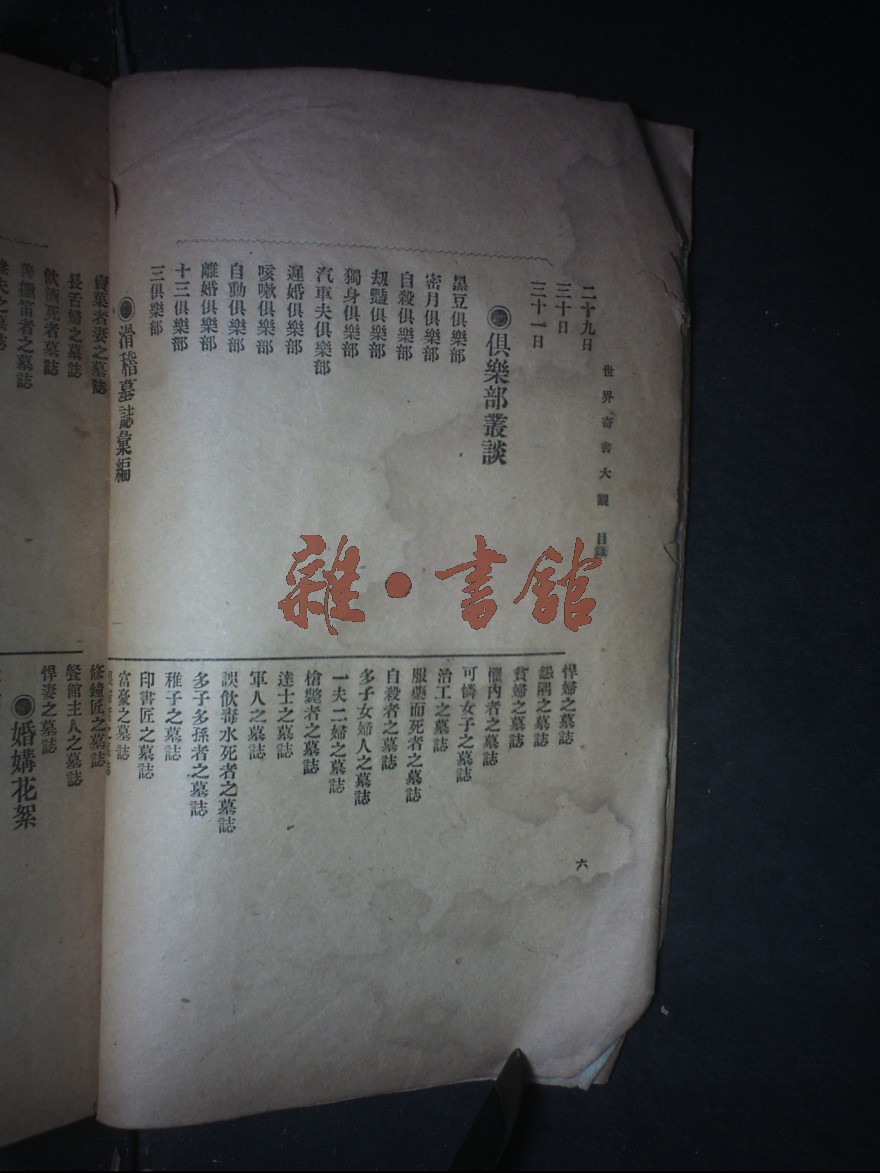 世界奇書大觀 目錄
二十九日
三十日
三十一日
俱樂部叢談
黑豆俱樂部
密月俱樂部
自殺俱樂部
劫豔俱樂部
獨身俱樂部
汽車夫俱樂部
遲婚俱樂部
咳嗽俱樂部
自動俱樂部
離婚俱樂部
十三俱樂部
三俱樂部
滑稽墓誌彙編
賣菓者妻之墓誌
長舌婦之墓誌
飲酒死者墓誌
笛者之墓誌
夫之墓誌
悍婦之墓誌
怨耦之墓誌
貧婦之墓誌
懼內者之墓誌
可憐女子之墓誌
治工之墓誌
服藥而死者之墓誌
自殺者之墓誌
多子女婦人之墓誌
一夫二婦之墓誌
槍斃者之墓誌
達士之墓誌
軍人之墓誌
誤飲毒水死者之墓誌
多子多孫者之墓誌
稚子之墓誌
印書匠之墓誌
富豪之墓誌
之墓誌
修鐘匠之墓誌
餐館主人之墓誌
悍妻之墓誌
婚媾花絮
六
雜·書館